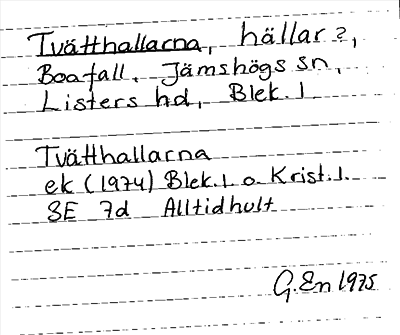 Tvätthallarna, hällar?,
Boafall, Jämshögs sn,
Listers hd, Blek. l
Tvätthallarna
ek (1974) Blek.l. o. Krist.l.
3E 7d Alltidhult
G.En 1975